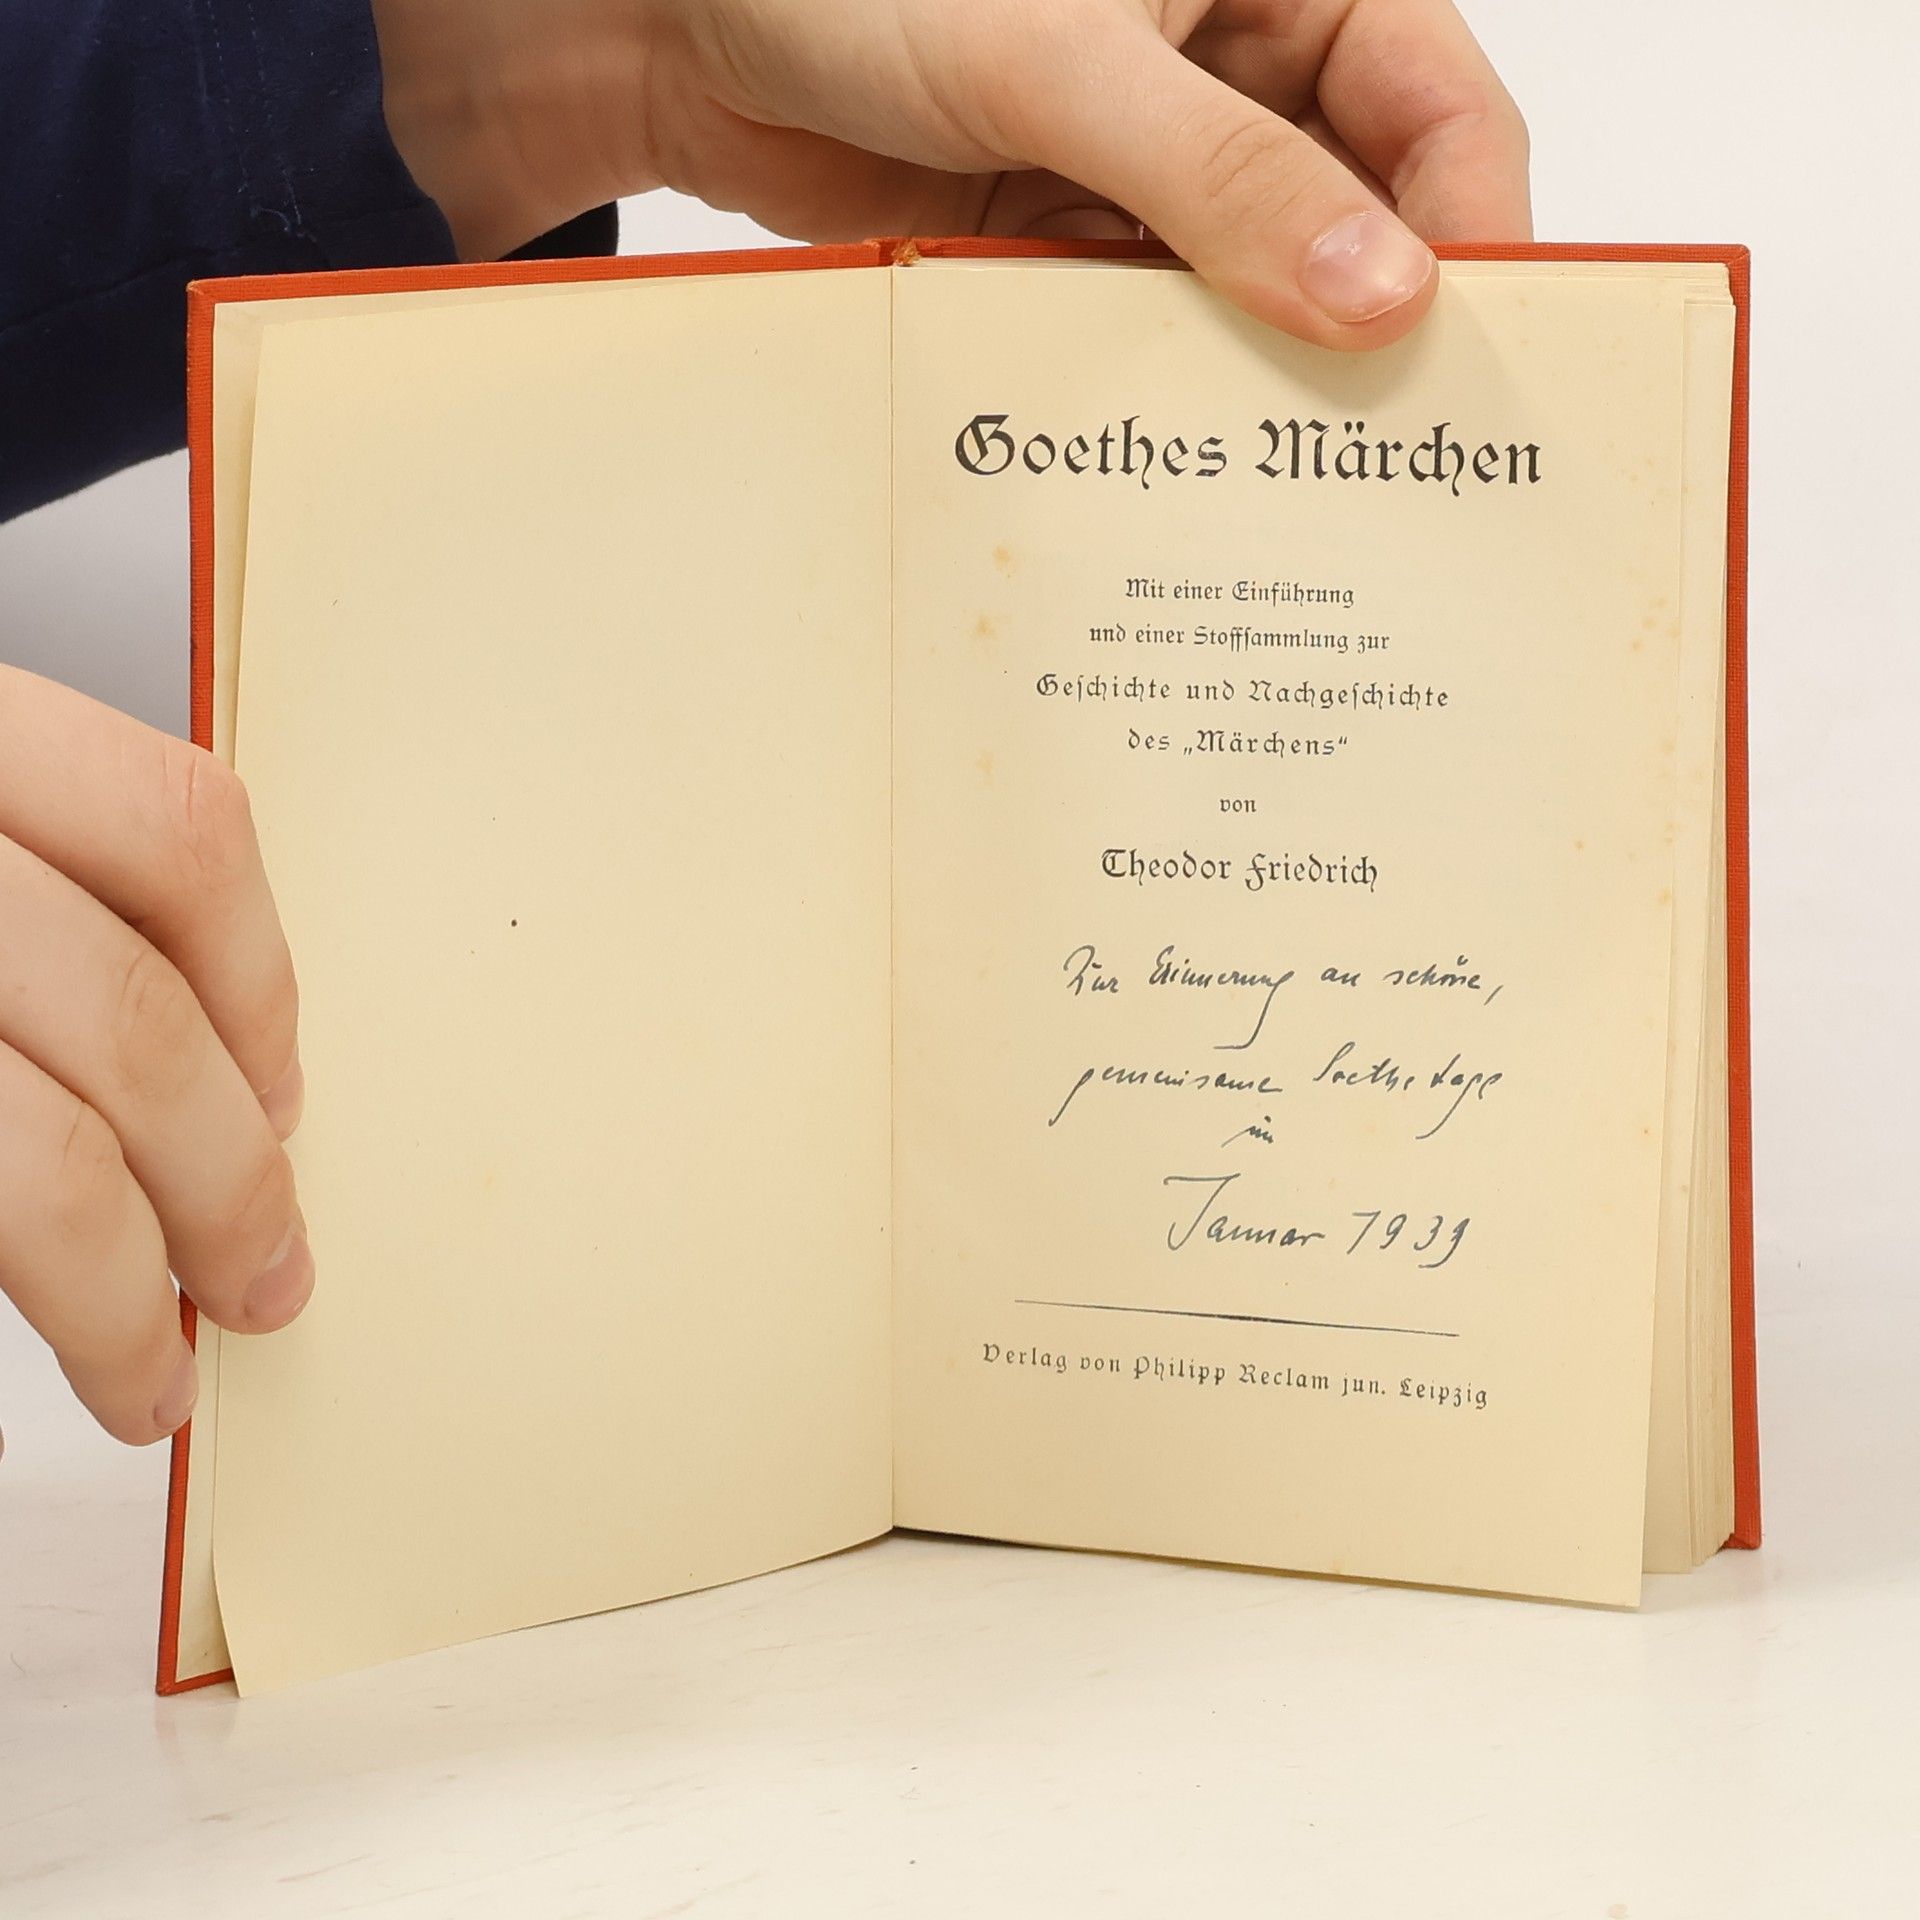 Goethes Märchen
Mit einer Einführung
und einer Stoffſammlung zur
Geſchichte und Nachgeſchichte
des „Märchens“
von
Theodor Friedrich
Zur Erinnerung an schöne,
gemeinsame Goethetage
im
Januar 1939
Verlag von Philipp Reclam jun. Leipzig